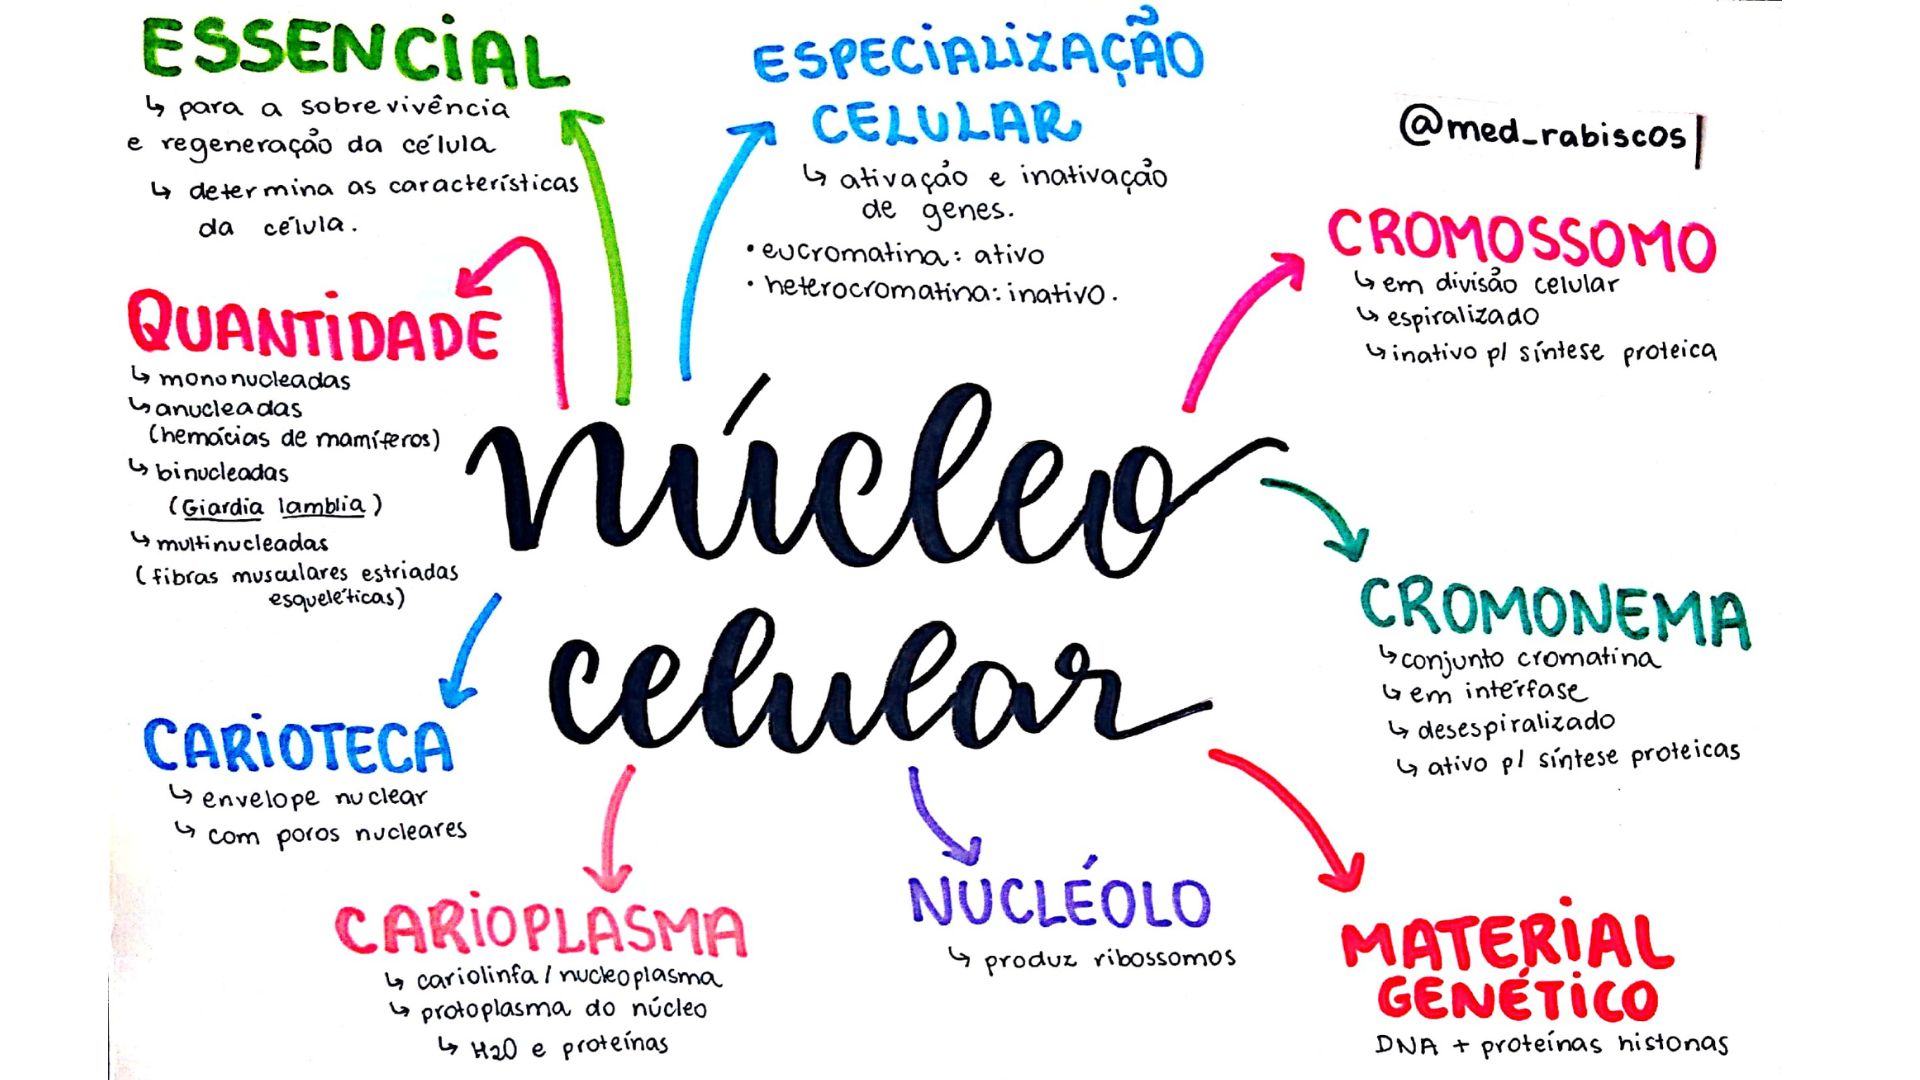 ESSENCIAL
↳ para a sobrevivência
e regeneração da célula
↳ determina as características
da célula.
ESPECIALIZAÇÃO
CELULAR
↳ ativação e inativação
de genes.
• eucromatina: ativo
• heterocromatina: inativo.
@med_rabiscos
CROMOSSOMO
↳ em divisão celular
↳ espiralizado
↳ inativo p/ síntese proteica
QUANTIDADE
↳ mononucleadas
↳ anucleadas
(hemácias de mamíferos)
↳ binucleadas
(Giardia lamblia)
↳ multinucleadas
(fibras musculares estriadas
esqueléticas)
núcleo
celular
CROMONEMA
↳ conjunto cromatina
↳ em intérfase
↳ desespiralizado
↳ ativo p/ síntese proteicas
CARIOTECA
↳ envelope nuclear
↳ com poros nucleares
CARIOPLASMA
↳ cariolinfa / nucleoplasma
↳ protoplasma do núcleo
↳ H2O e proteínas
NUCLÉOLO
↳ produz ribossomos
MATERIAL
GENÉTICO
DNA + proteínas histonas